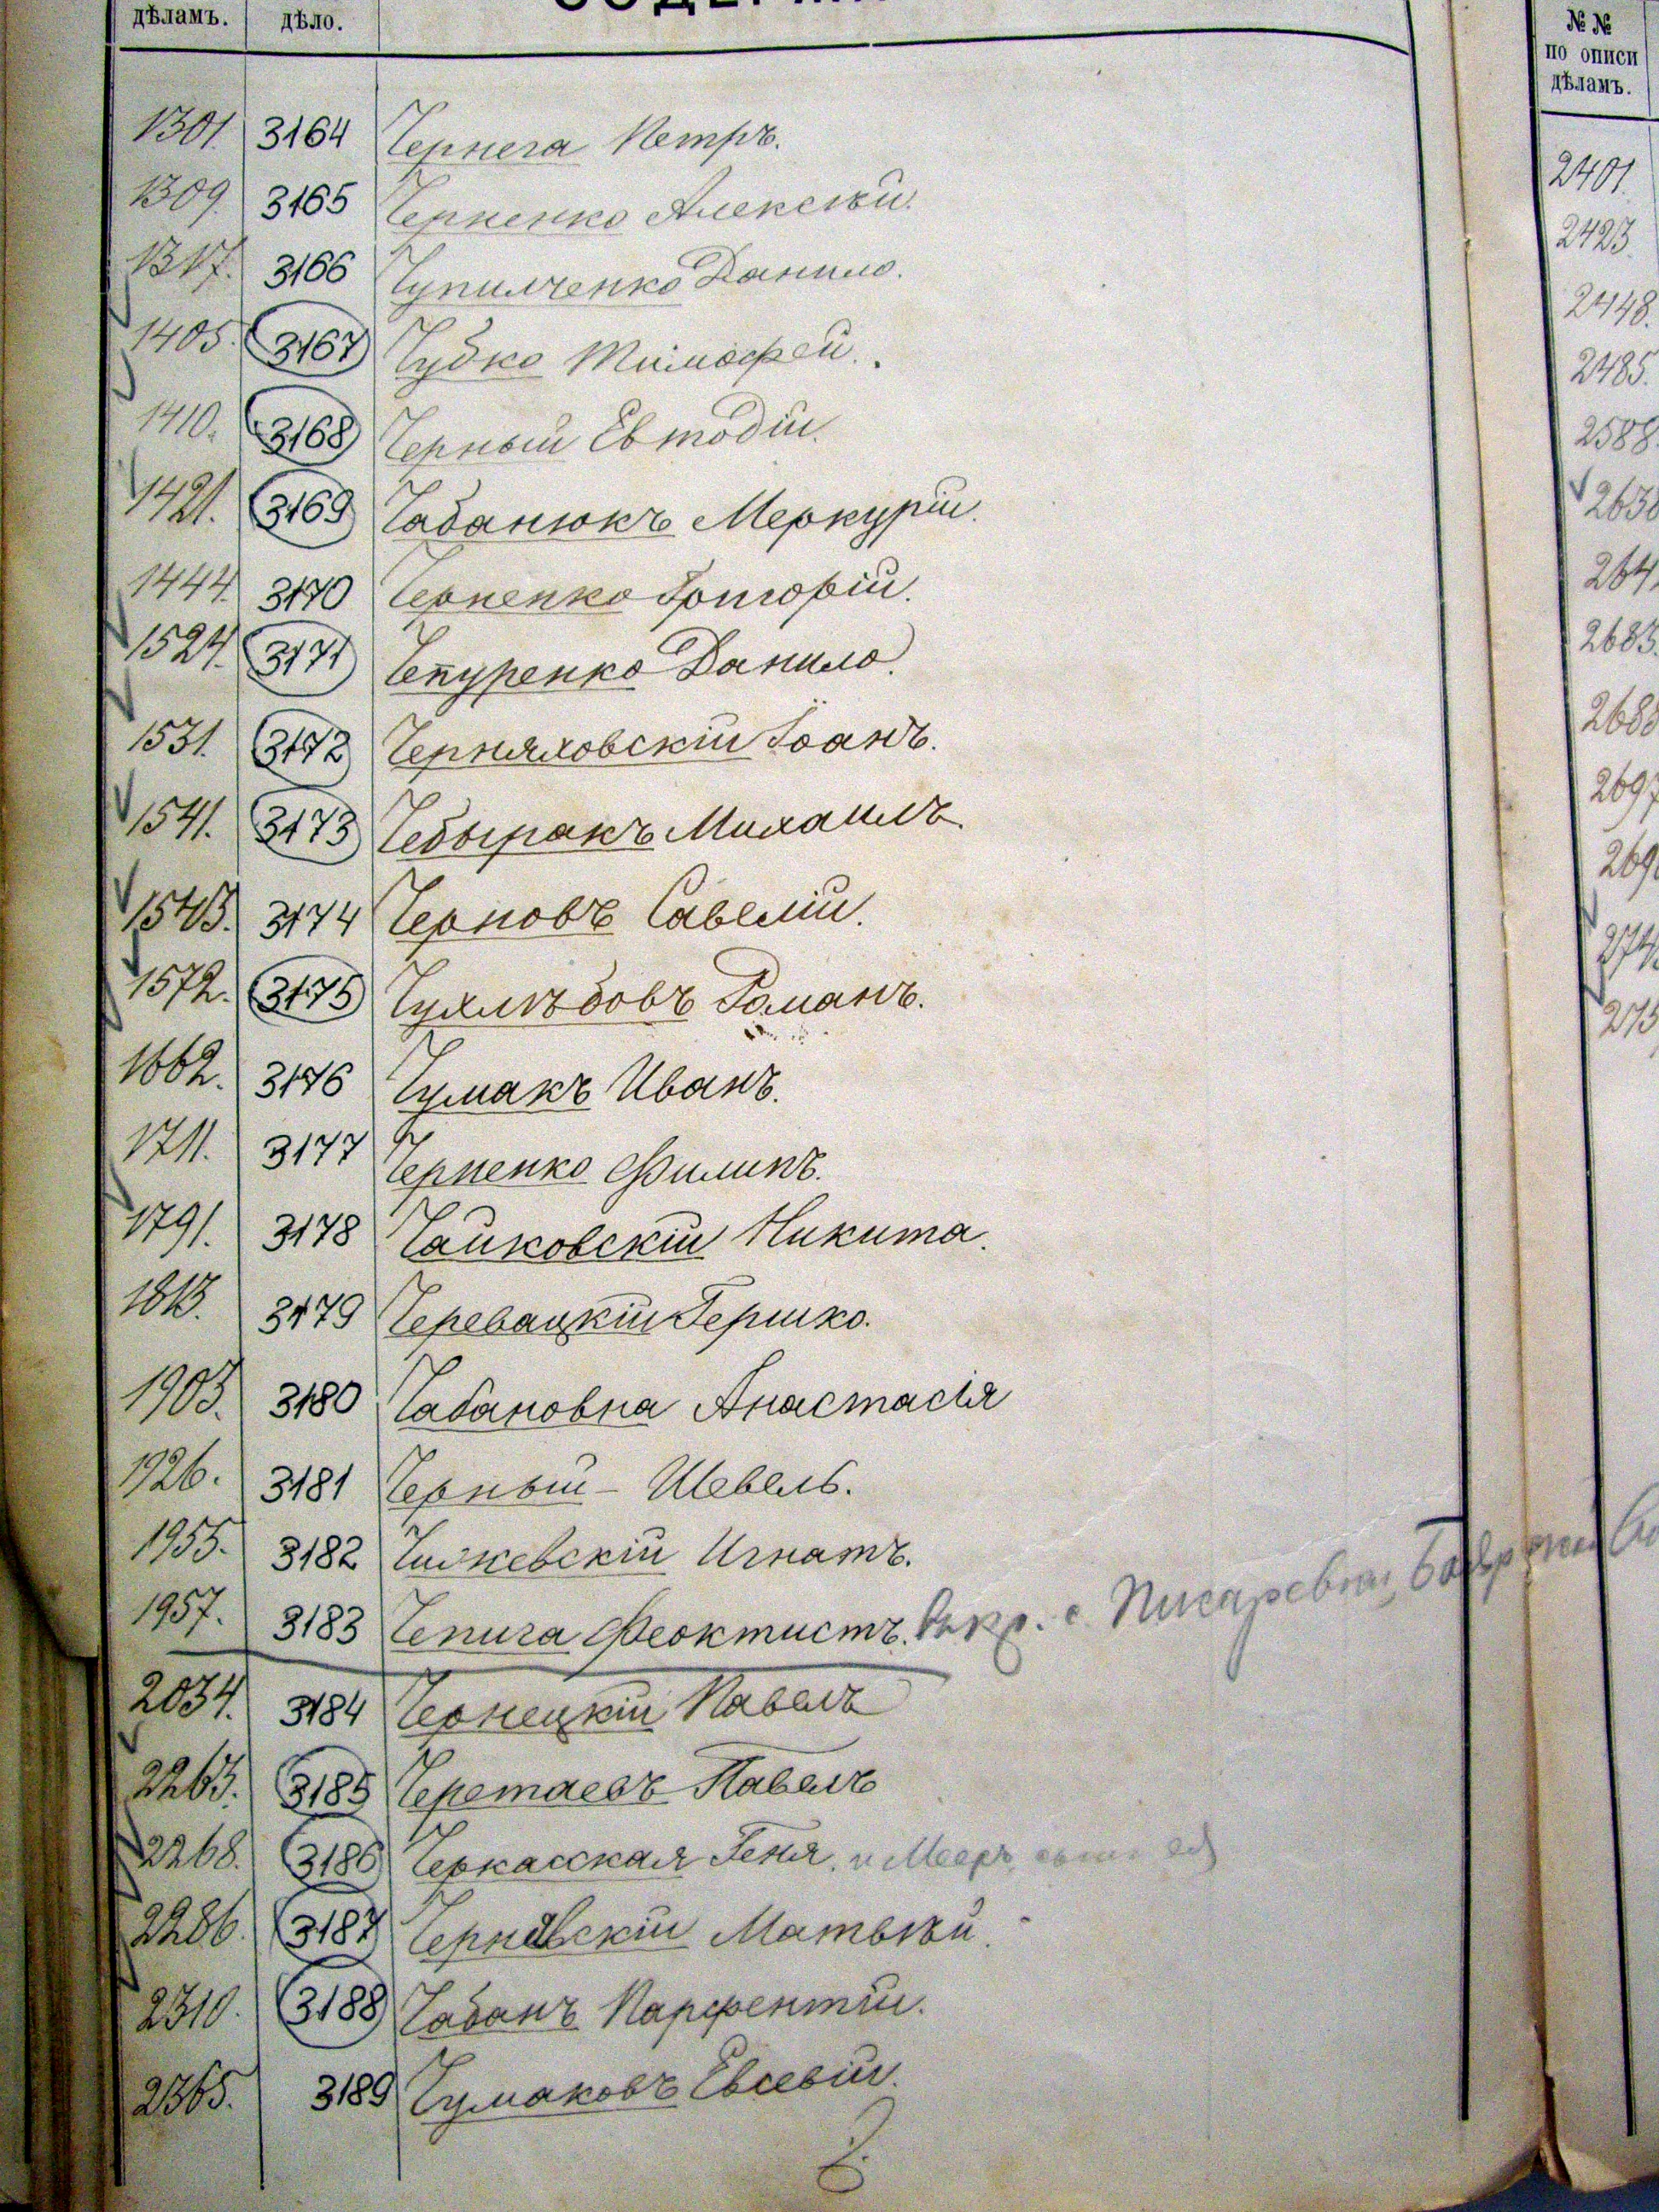 дѣламъ. дѣло.
№ №
по описи
дѣламъ.
1301. 3164 Чернега Петръ.
1309. 3165 Черненко Алексѣй.
1317. 3166 Чупилченко Данило.
1405. 3167 Чубко Тимофей.
1410. 3168 Черный Евтодій.
1421. 3169 Чабанюкъ Меркурій.
1444. 3170 Черненко Григорій.
1524. 3171 Чепуренко Данило.
1531. 3172 Черняховскій Іоанъ.
1541. 3173 Чебыракъ Михаилъ.
1543. 3174 Черновъ Савелій.
1572. 3175 Чухлѣбовъ Романъ.
1662. 3176 Чумакъ Иванъ.
1711. 3177 Черненко Филипъ.
1791. 3178 Чайковскій Никита.
1813. 3179 Черевацкій Гершко.
1903. 3180 Чабановна Анастасія
1926. 3181 Черный - Шевель.
1955. 3182 Чижевскій Игнатъ.
1957. 3183 Чепига Феоктистъ. с. Писаревки,
2034. 3184 Чернецкій Павелъ
2263. 3185 Черетаевъ Павелъ
2268. 3186 Черкасская Геня. и
2286. 3187 Чернявскій Матвѣй.
2310. 3188 Чабанъ Парфентій.
2365. 3189 Чумаковъ Евсевій.
2401.
2423.
2448.
2485.
2588
2683.
2697